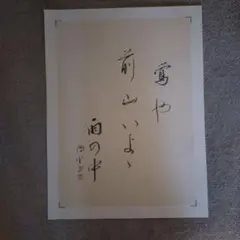 鶯や
前山いよゝ
雨の中